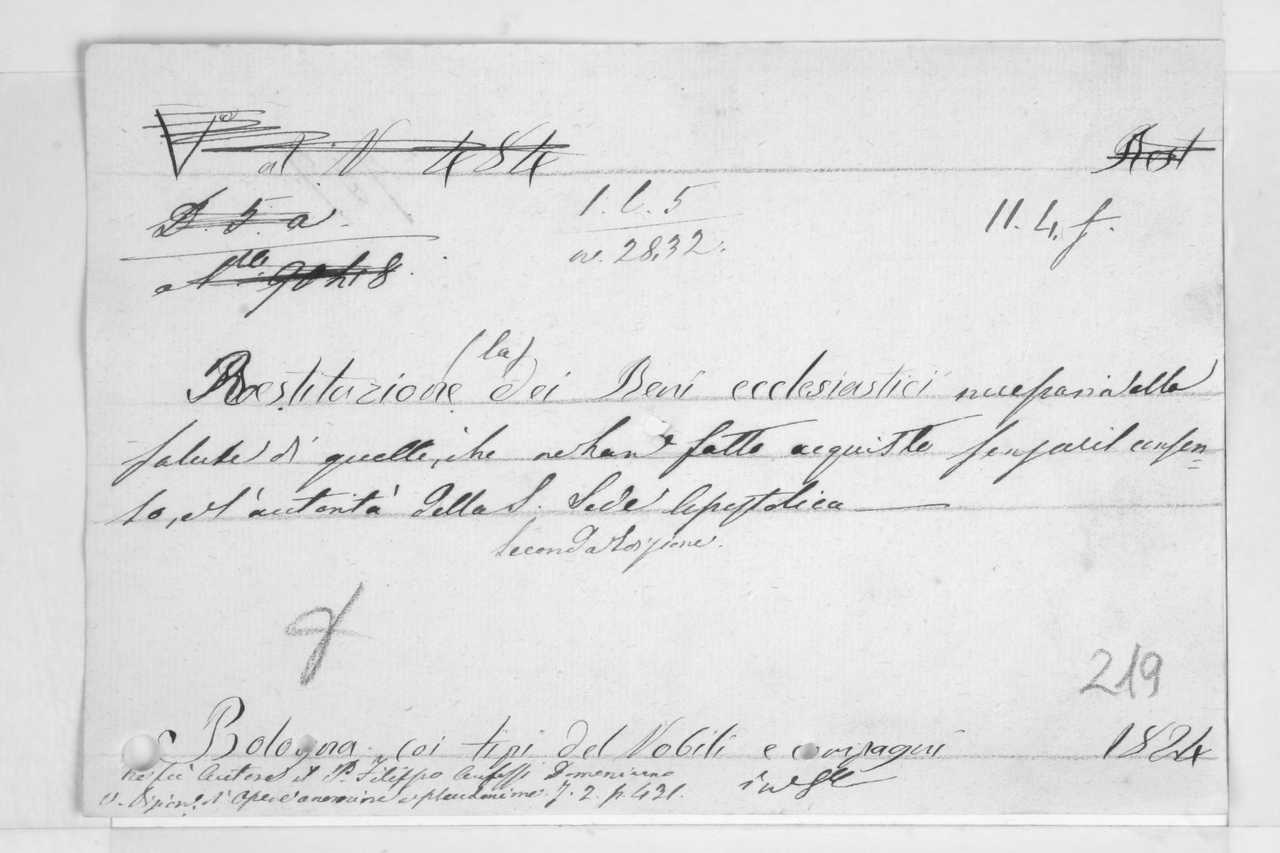 al N 484
Rest
D. 5. a.
1. l. 5
11. 4. f.
n. 2832.
(la)
Restituzione dei Beni ecclesiastici necessaria alla
salute di quelli, che ne han fatto acquisto senza il consen=
so, e l'autorità della S. Sede Apostolica
Seconda Edizione.
219
Bologna coi tipi del Nobili e compagni 1824
ne fu Autore il P. Filippo Anfossi Domenicano in 8°
V. Dizion.° d'opere anonime e pseudonime T. 2. p. 431.